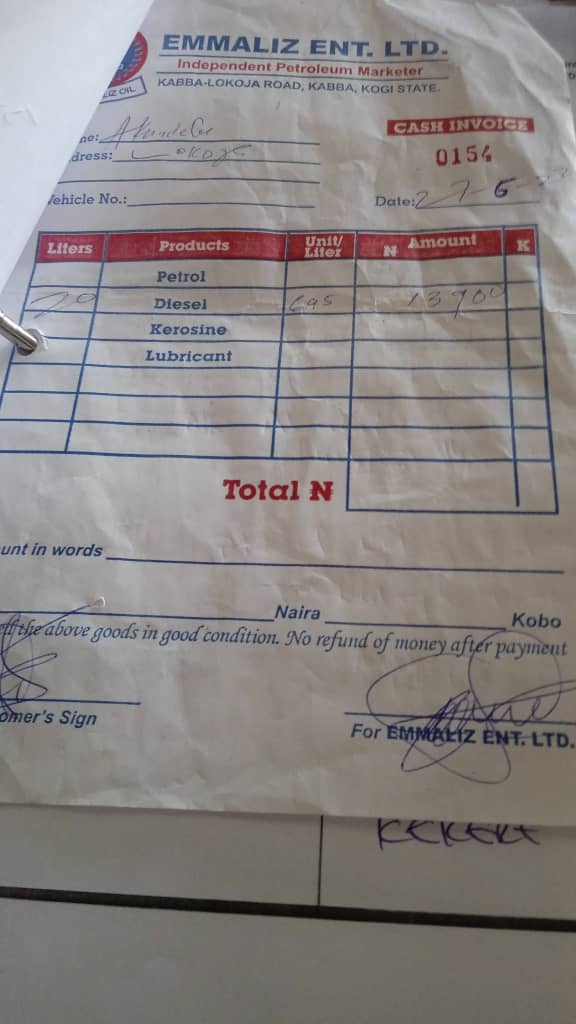 EMMALIZ ENT. LTD.
Independent Petroleum Marketer
LIZ OIL
KABBA-LOKOJA ROAD, KABBA, KOGI STATE.
CASH INVOICE
0154
me:
dress: Lokoja
Vehicle No.:
Date: 27-6-
Liters Products Unit/Liter ₦ Amount K
Petrol
20 Diesel 695 13900
Kerosine
Lubricant
Total ₦
unt in words
Naira Kobo
ed the above goods in good condition. No refund of money after payment
omer's Sign
For EMMALIZ ENT. LTD.